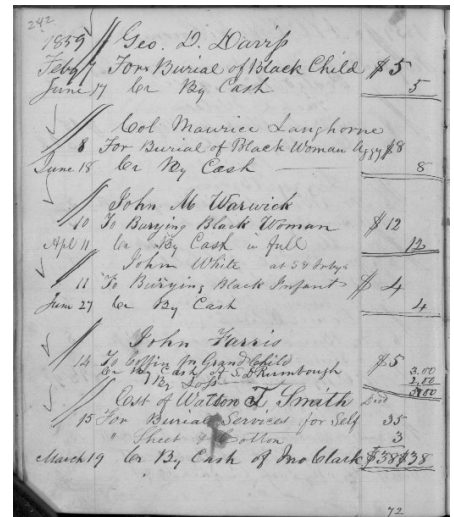 242
1859 Geo. D. Davis
Feby 7 For Burial of Black Child $5
June 17 Cr By Cash 5
Col Maurice Langhorne
8 For Burial of Black Woman Aggy $8
June 18 Cr By Cash 8
John M Warwick
10 To Burying Black Woman $12
Apl 11 Cr By Cash in full 12
John White at
11 To Burying Black Infant $4
June 27 Cr By Cash 4
John Farris
14 To Coffin for Grand Child $5
Cr By Cash of S Rumbough 3.00
By Loss 2.00
5.00
Est of Watson T Smith Decd
15 For Burial Services for Self 35
" Sheet & Cotton 3
March 19 Cr By Cash of Jno Clark $38 $38
72